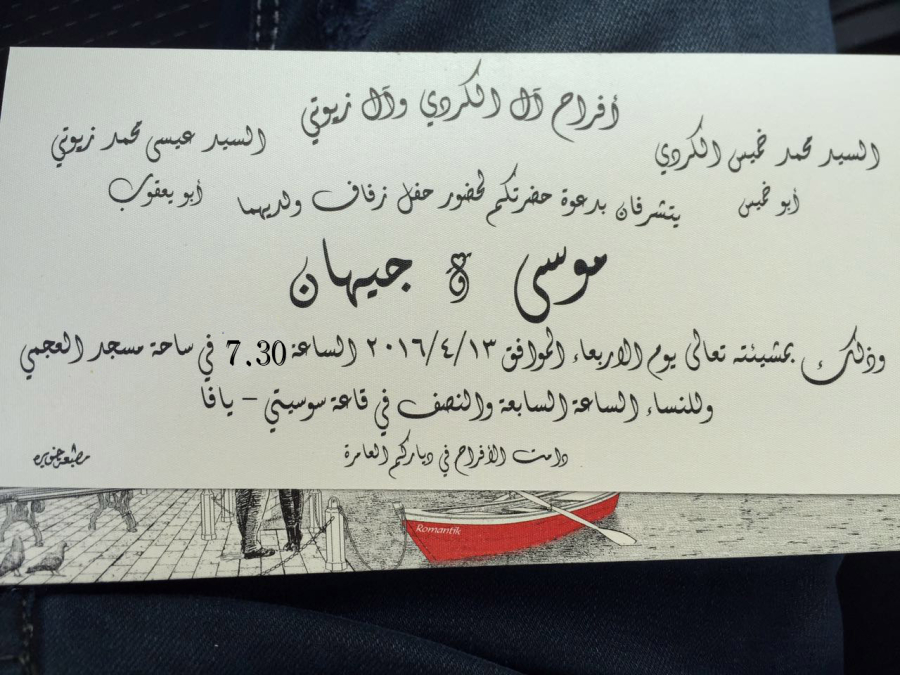 أفراح آل الكردي وآل زيوتي
السيد محمد خميس الكردي
أبو خميس
السيد عيسى محمد زيوتي
أبو يعقوب
يتشرفان بدعوة حضرتكم لحضور حفل زفاف ولديهما
موسى و جيهان
وذلك بمشيئته تعالى يوم الاربعاء الموافق ٢٠١٦/٤/١٣ الساعة 7.30 في ساحة مسجد العجمي
وللنساء الساعة السابعة والنصف في قاعة سوسيتي - يافا
دامت الأفراح في دياركم العامرة
Romantik